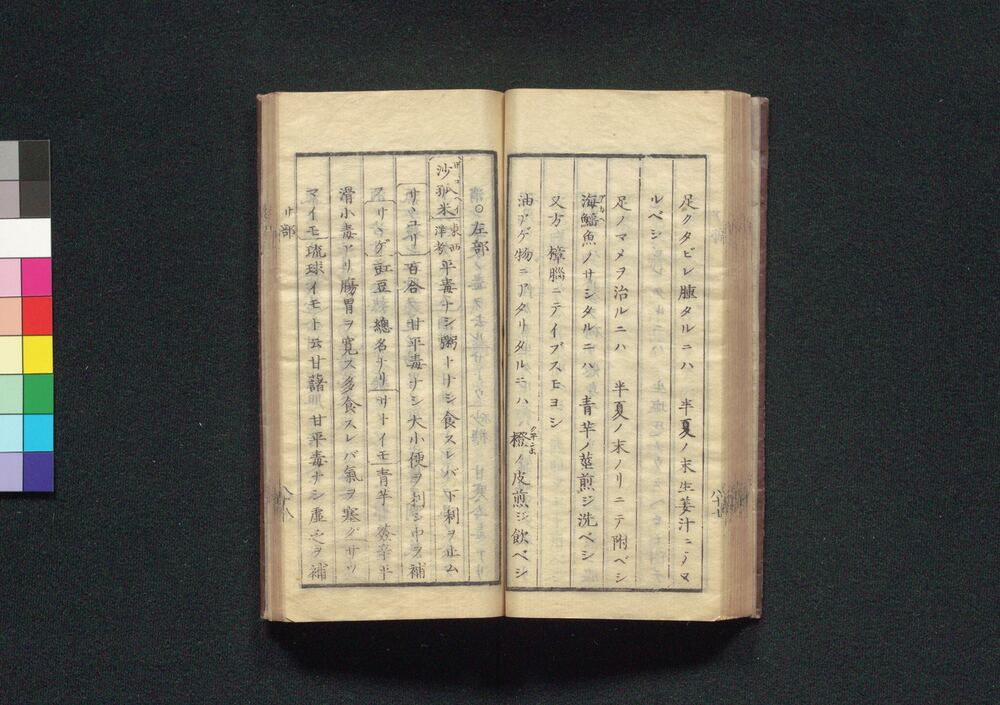 足クタビレ腫タルニハ 半夏ノ末生姜汁ニテヌ
ルベシ
足ノマメヲ治ルニハ 半夏ノ末ノリニテ附ベシ
海鷂魚ノサシタルニハ 青芋ノ莖煎ジ洗ベシ
又方 樟腦ニテイブスモヨシ
油アゲ物ニアタリタルニハ 橙ノ皮煎ジ飲ベシ
八十七
○左部
沙孤米 東西洋考 平毒ナシ粥トナシ食スレバ下利ヲ止ム
サユリ 百合 甘平毒ナシ大小便ヲ利シ中ヲ補
フサヽゲ 豇豆總名ナリ サトイモ 青芋 辛平
滑小毒アリ腸胃ヲ寛ス多食スレバ氣ヲ塞グサツ
マイモ 琉球イモト云甘藷 甘平毒ナシ虚乏ヲ補
サ部
八十八